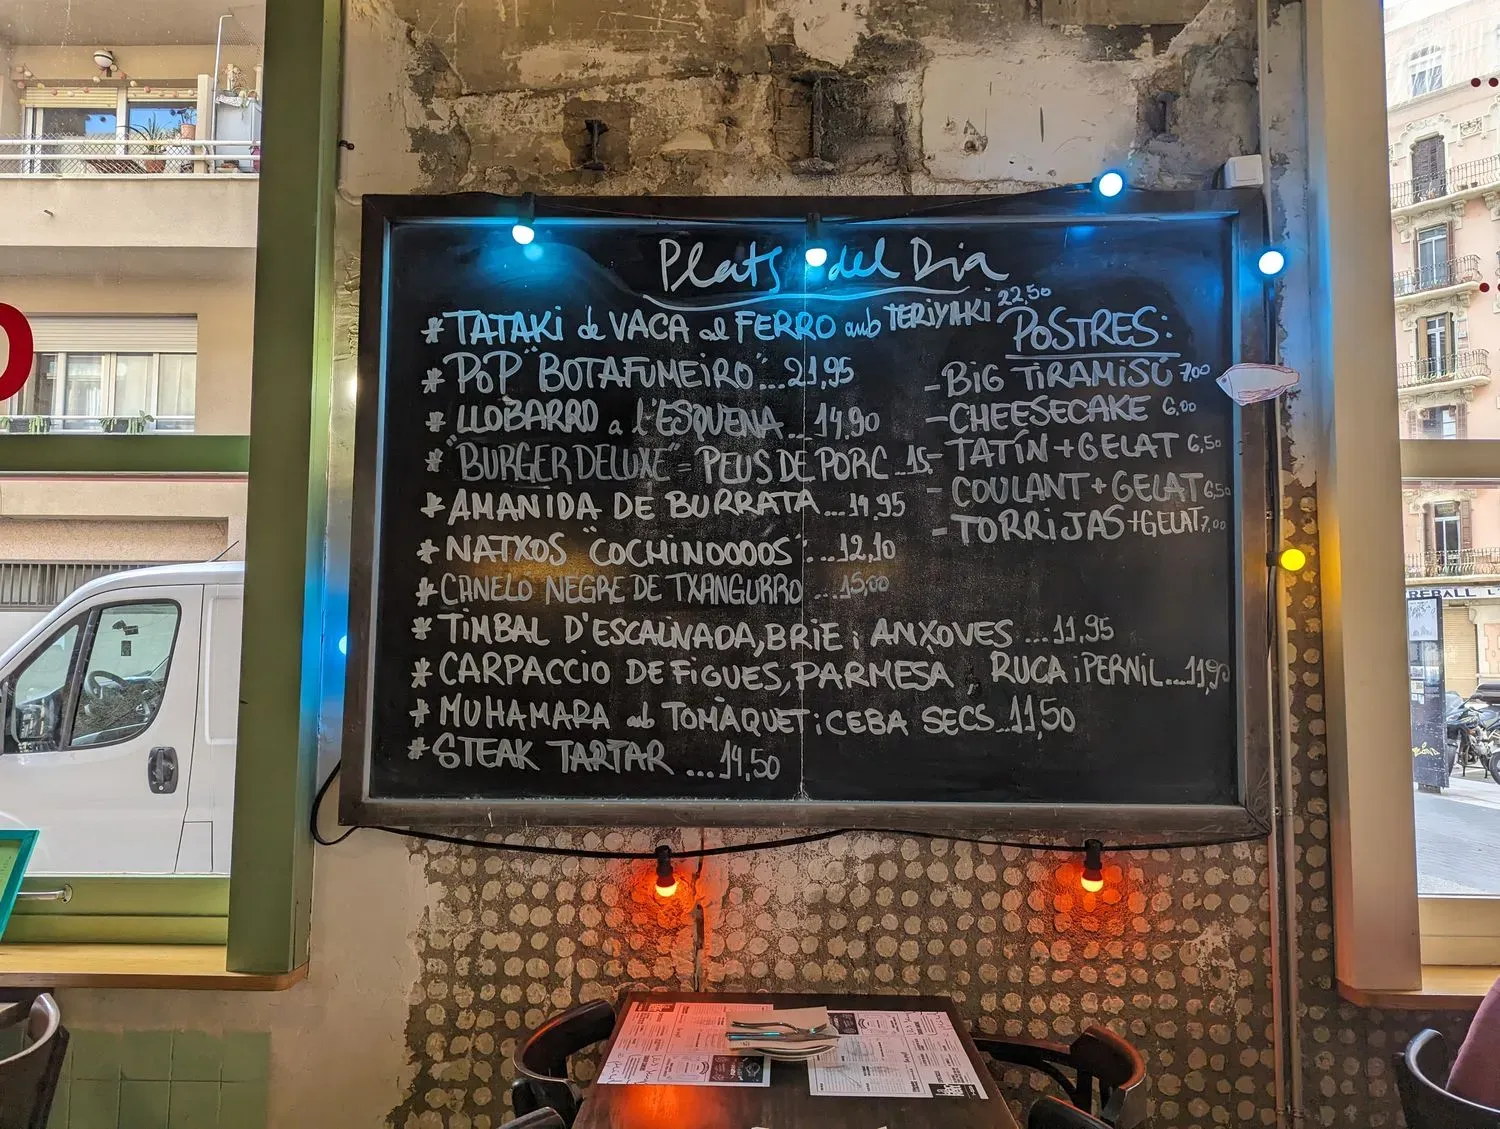 Plats del Dia
* TATAKI de VACA al FERRO amb TERIYAKI 22,50
* POP "BOTAFUMEIRO"...21,95
* LLOBARRO a L'ESQUENA...14,90
* "BURGER DELUXE" = PEUS DE PORC...15
* AMANIDA DE BURRATA...14,95
* NATXOS "COCHINOOOOS"...12,10
* CANELO NEGRE DE TXANGURRO...15,00
* TIMBAL D'ESCALIVADA, BRIE i ANXOVES...11,95
* CARPACCIO DE FIGUES, PARMESA, RUCA i PERNIL...11,90
* MUHAMARA amb TOMÀQUET i CEBA SECS...11,50
* STEAK TARTAR ...14,50
POSTRES:
- BIG TIRAMISÚ 7,00
- CHEESECAKE 6,00
- TATÍN + GELAT 6,50
- COULANT + GELAT 6,50
- TORRIJAS + GELAT 7,00